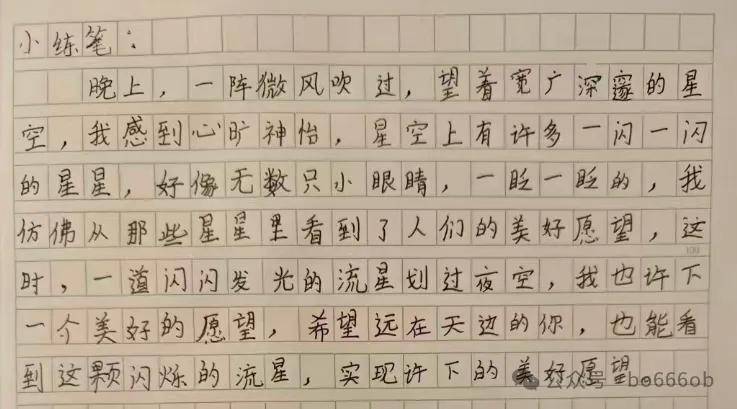 小练笔：
晚上，一阵微风吹过，望着宽广深邃的星
空，我感到心旷神怡，星空上有许多一闪一闪
的星星，好像无数只小眼睛，一眨一眨的，我
仿佛从那些星星里看到了人们的美好愿望，这
100
时，一道闪闪发光的流星划过夜空，我也许下
一个美好的愿望，希望远在天边的你，也能看
到这颗闪烁的流星，实现许下的美好愿望。
公众号·bo666ob